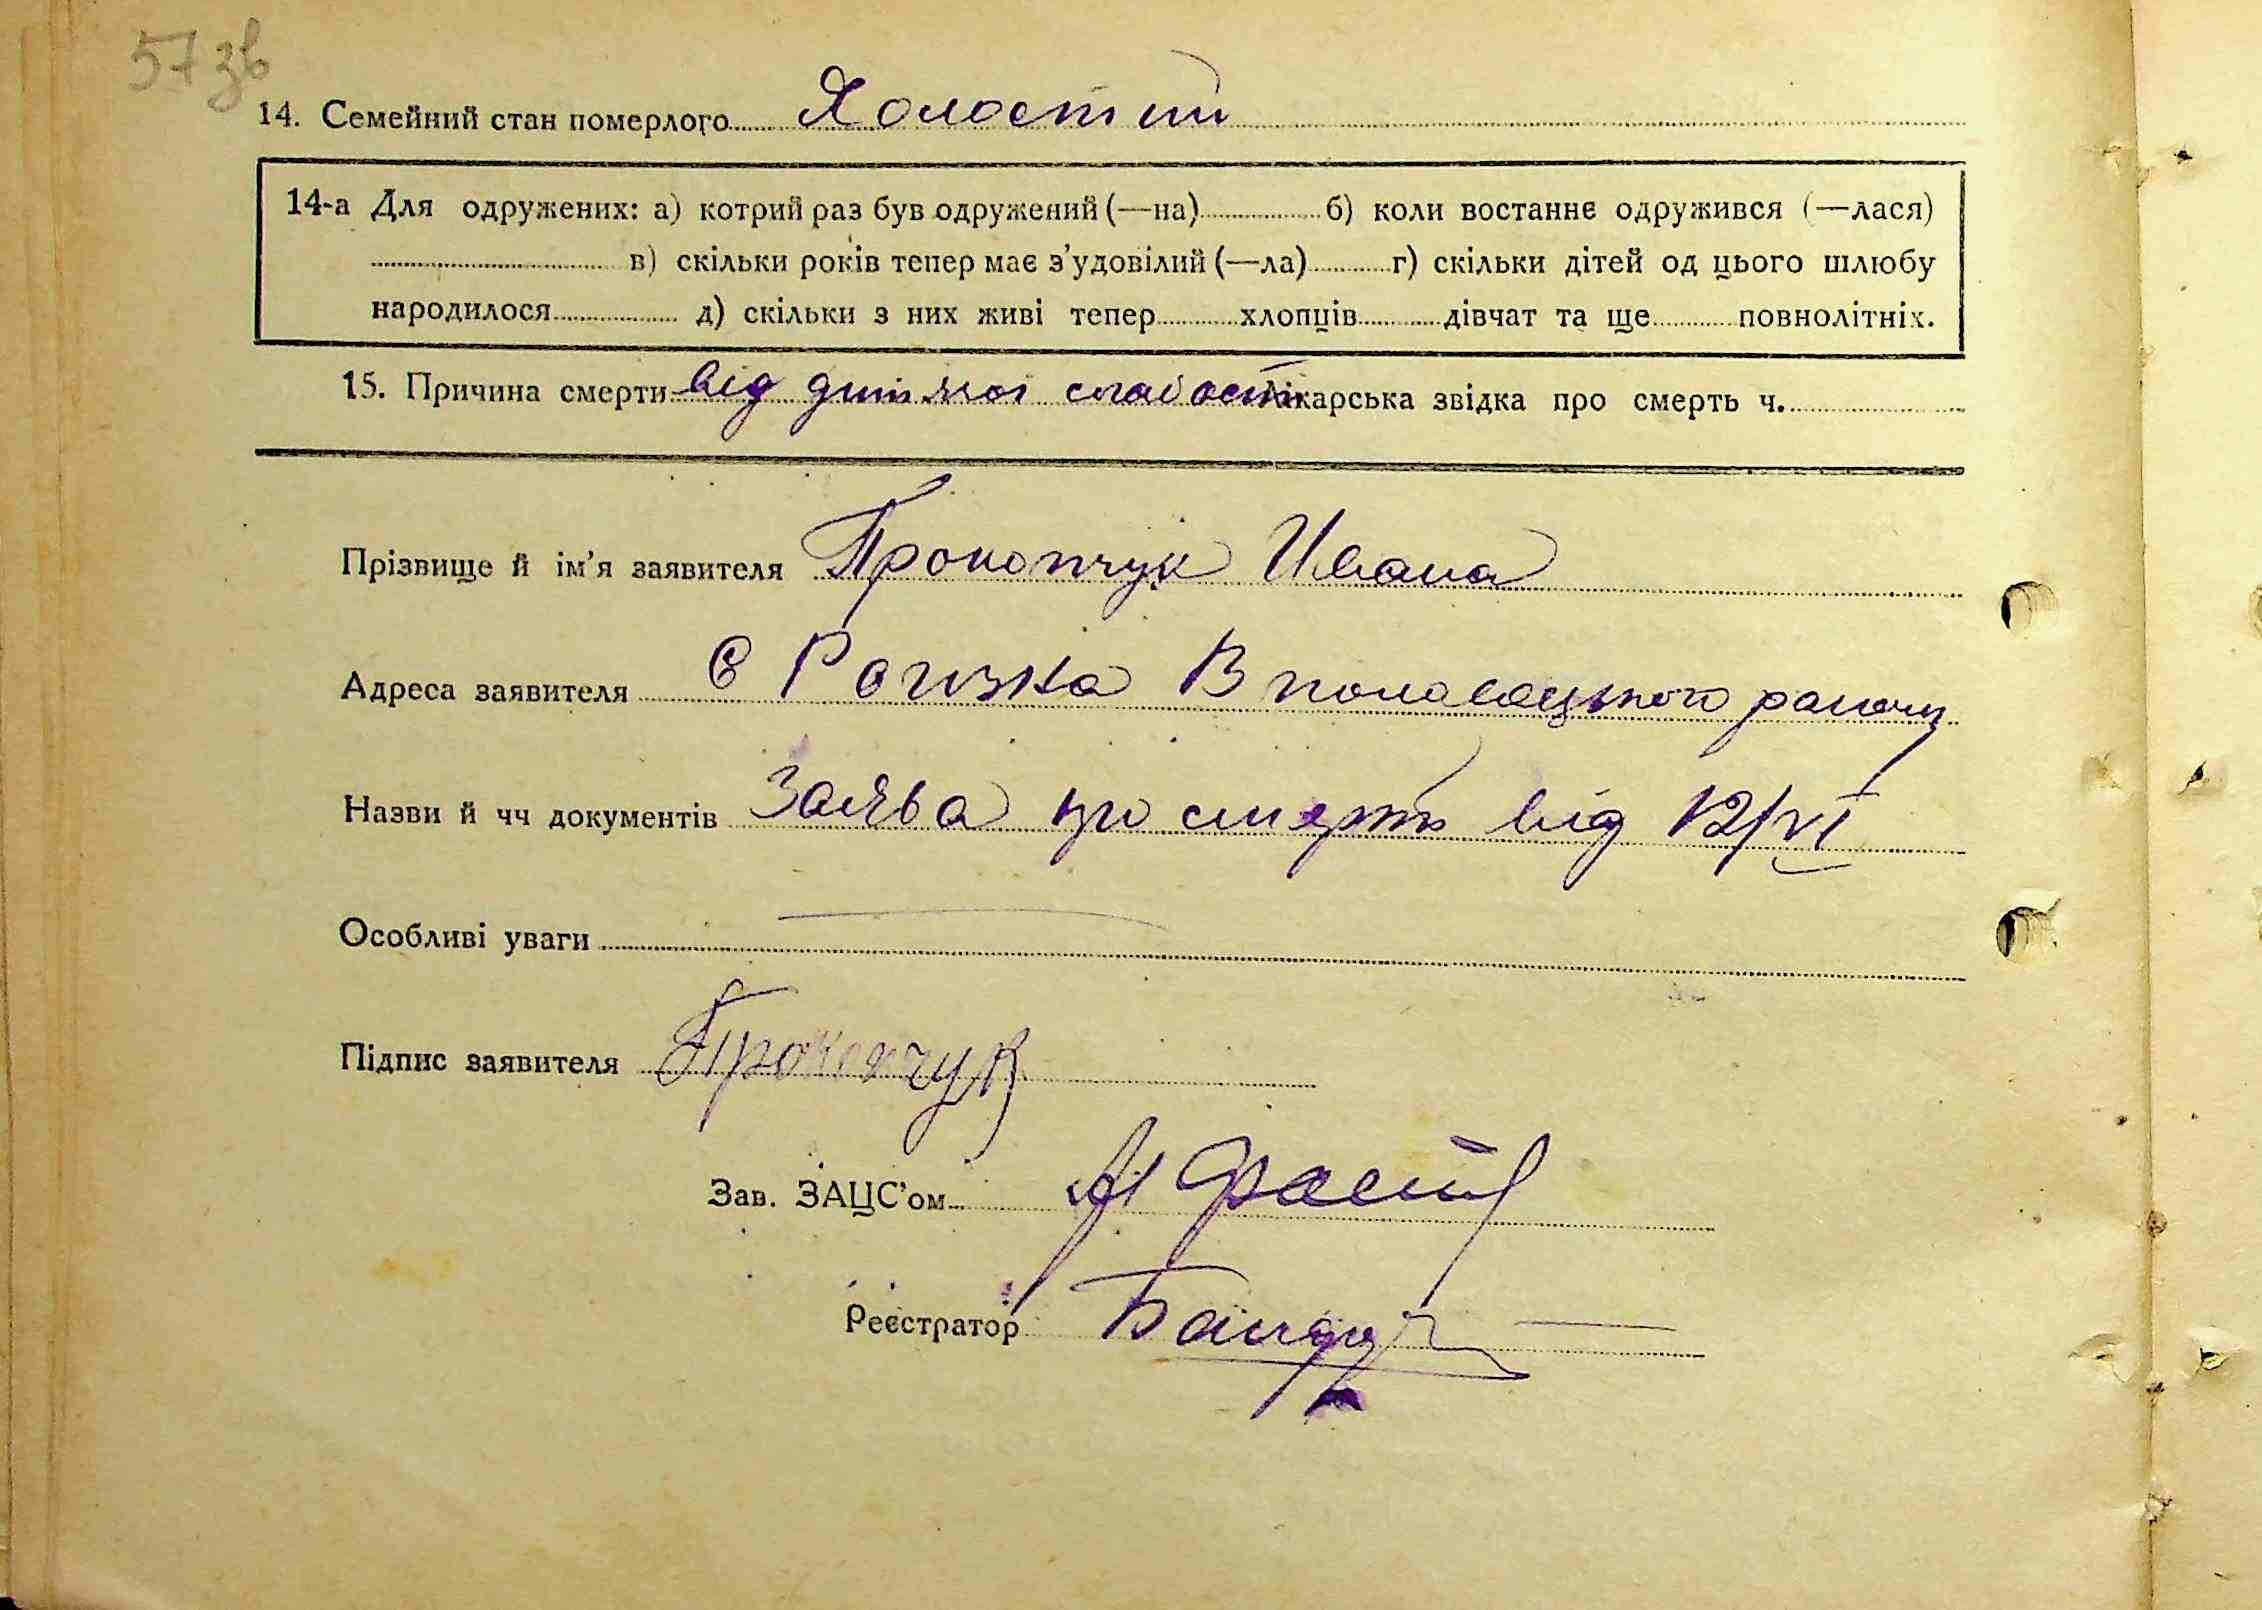 57зв
14. Семейний стан померлого Холостий
14-а Для одружених: а) котрий раз був одружений (—на) б) коли востаннє одружився (—лася)
в) скільки років тепер має з’удовілий (—ла) г) скільки дітей од цього шлюбу
народилося д) скільки з них живі тепер хлопців дівчат та ще повнолітніх.
15. Причина смерти від дитячої слабості Лікарська звідка про смерть ч.
Прізвище й ім’я заявителя Прокопчук Ивана
Адреса заявителя с В половецького району
Назви й чч документів Заява про смерть від 12/VI
Особливі уваги
Підпис заявителя Прокопчук
Зав. ЗАЦС’ом
Реєстратор